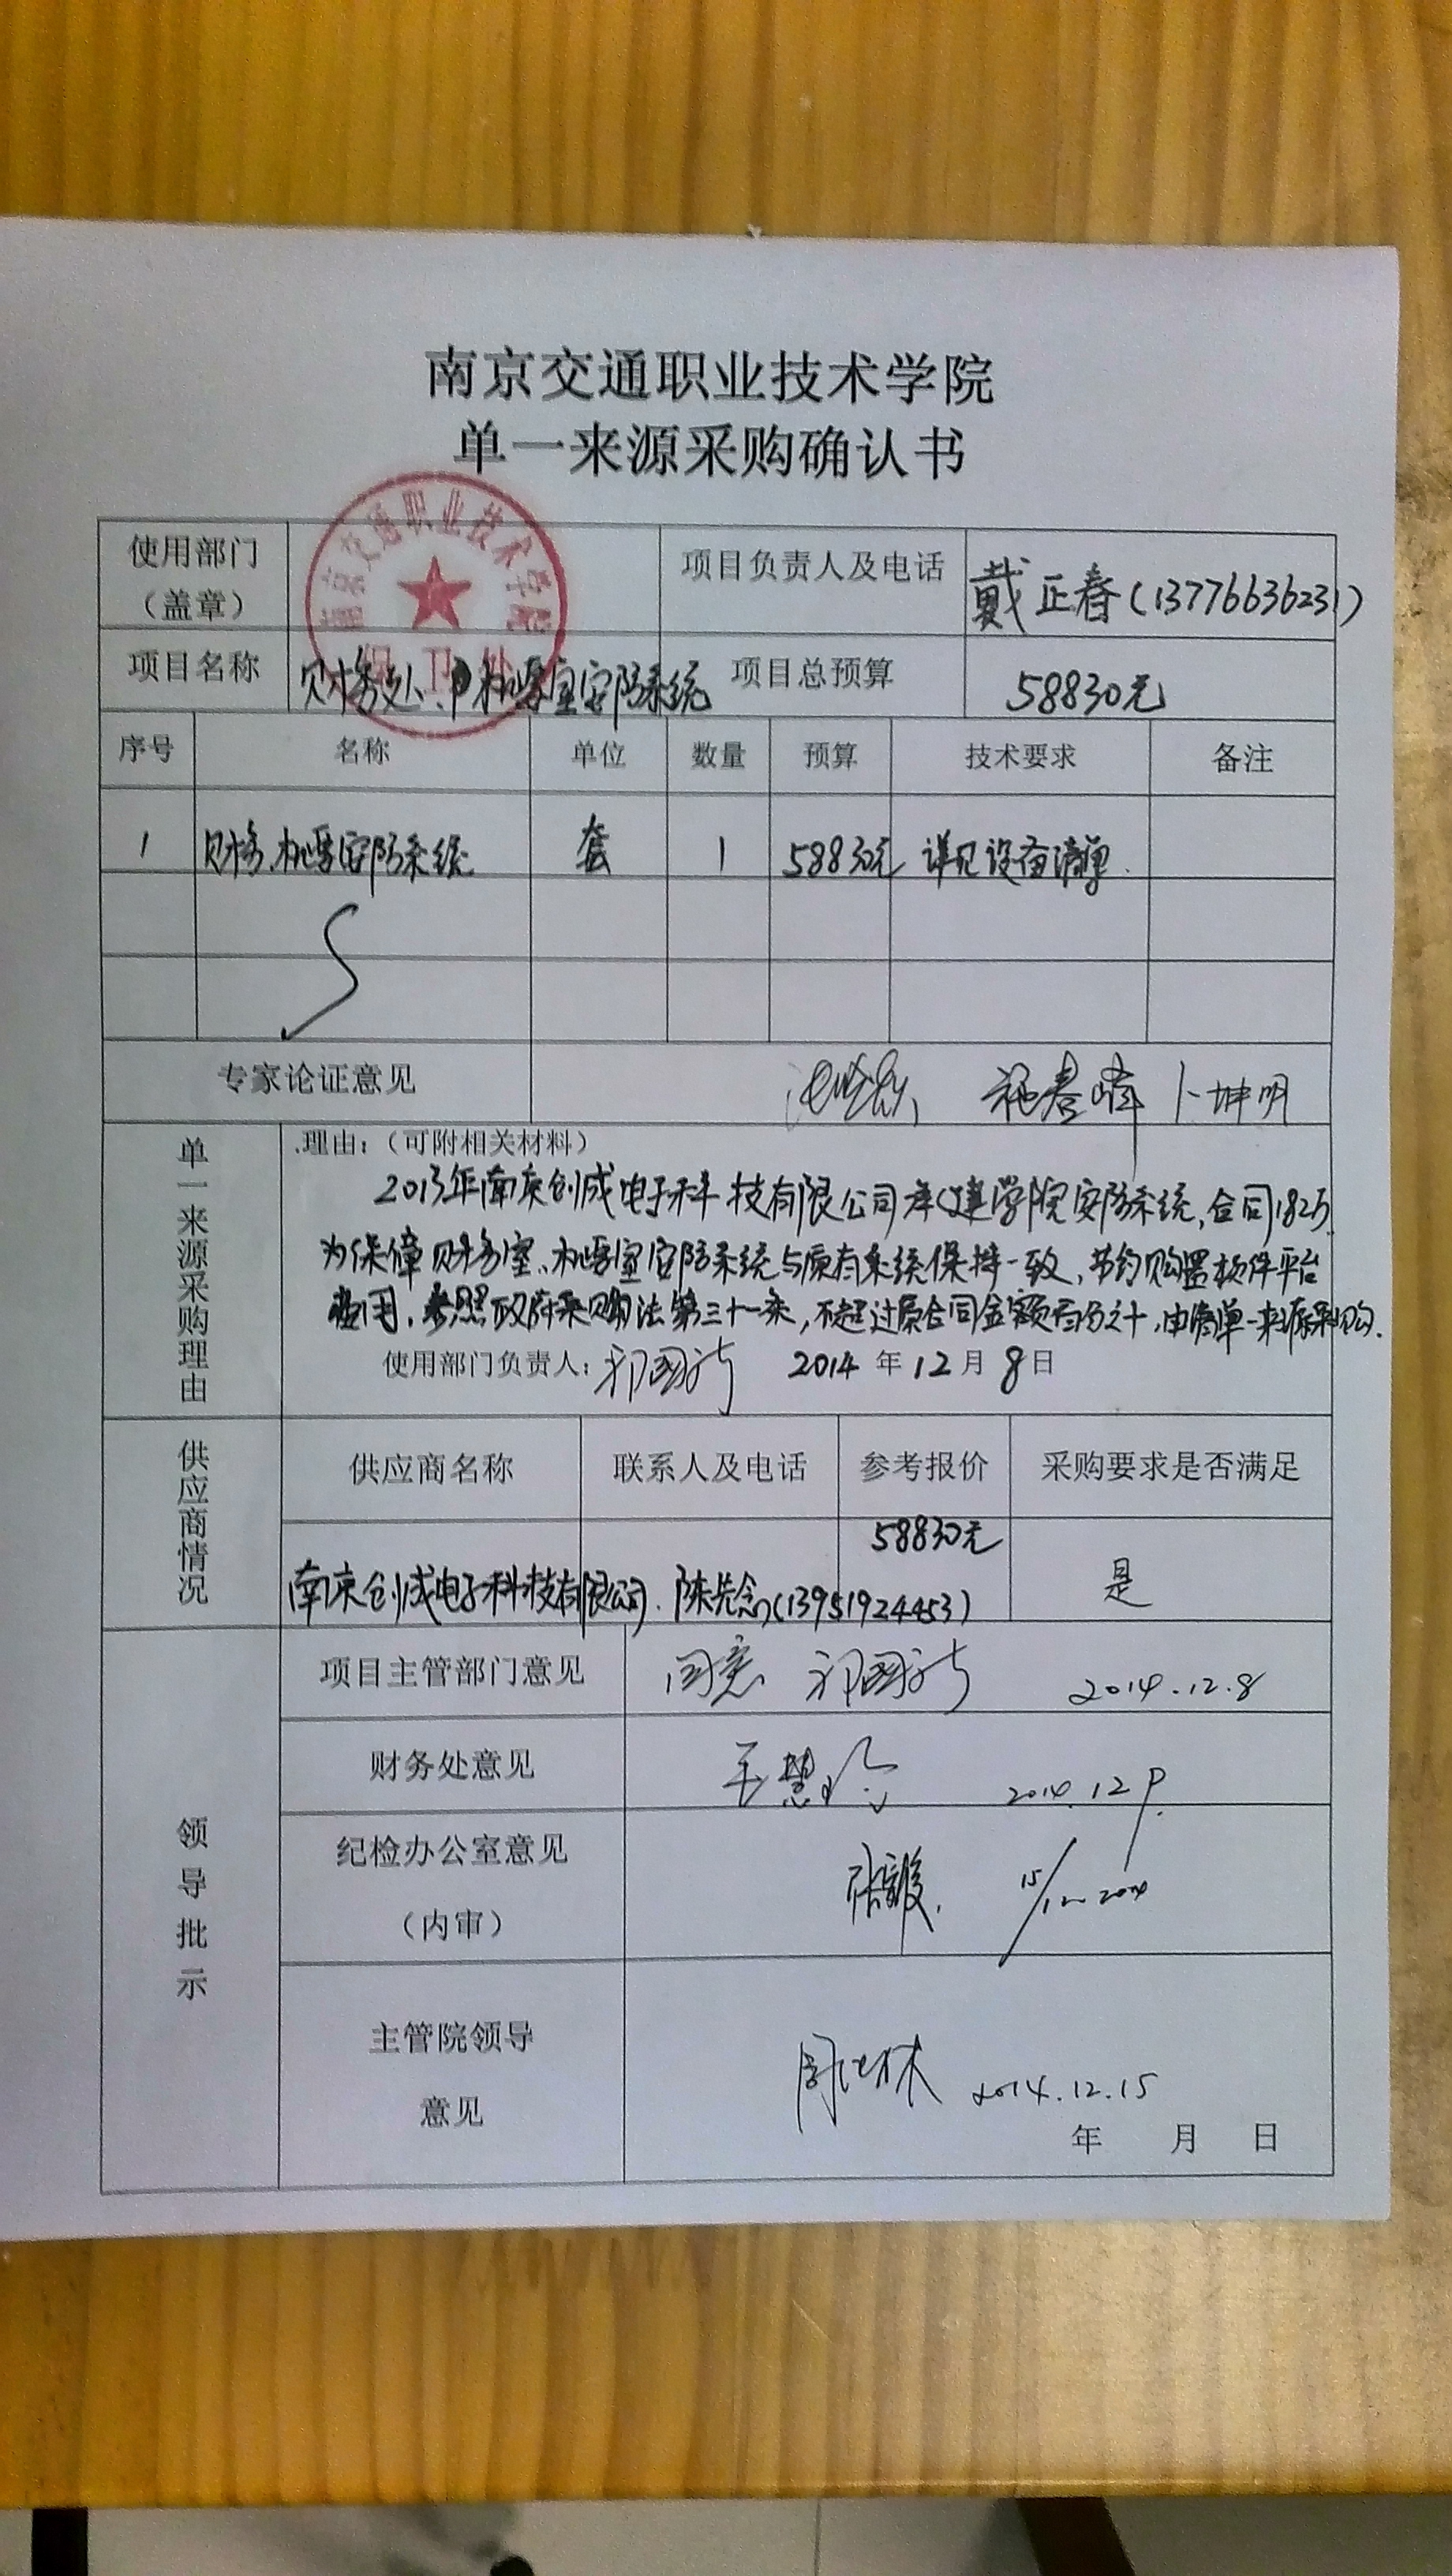 南京交通职业技术学院
单一来源采购确认书
南京交通职业技术学院
保卫处
使用部门
（盖章）
项目负责人及电话 戴正春(13776636231)
项目名称 财务处、机要室安防系统 项目总预算 58830元
序号 名称 单位 数量 预算 技术要求 备注
1 财务、机要安防系统 套 1 58830元 详见设备清单.
专家论证意见 卜坤明
单一来源采购理由
.理由:（可附相关材料）
2013年南京创成电子科技有限公司承建学院安防系统,合同182万.
为保障财务室、机要室安防系统与原有系统保持一致,节约购置软件平台
费用,参照政府采购法第三十一条,不超过原合同金额百分之十,申请单一来源采购.
使用部门负责人: 2014年12月8日
供应商情况
供应商名称 联系人及电话 参考报价 采购要求是否满足
58830元
南京创成电子科技有限公司. 陈先念(13951924453) 是
领导批示
项目主管部门意见 同意 2014.12.8
财务处意见 王慧玲 2014.12.9.
纪检办公室意见
（内审） 张毅. 15/12-2014
主管院领导
意见 2014.12.15
年 月 日